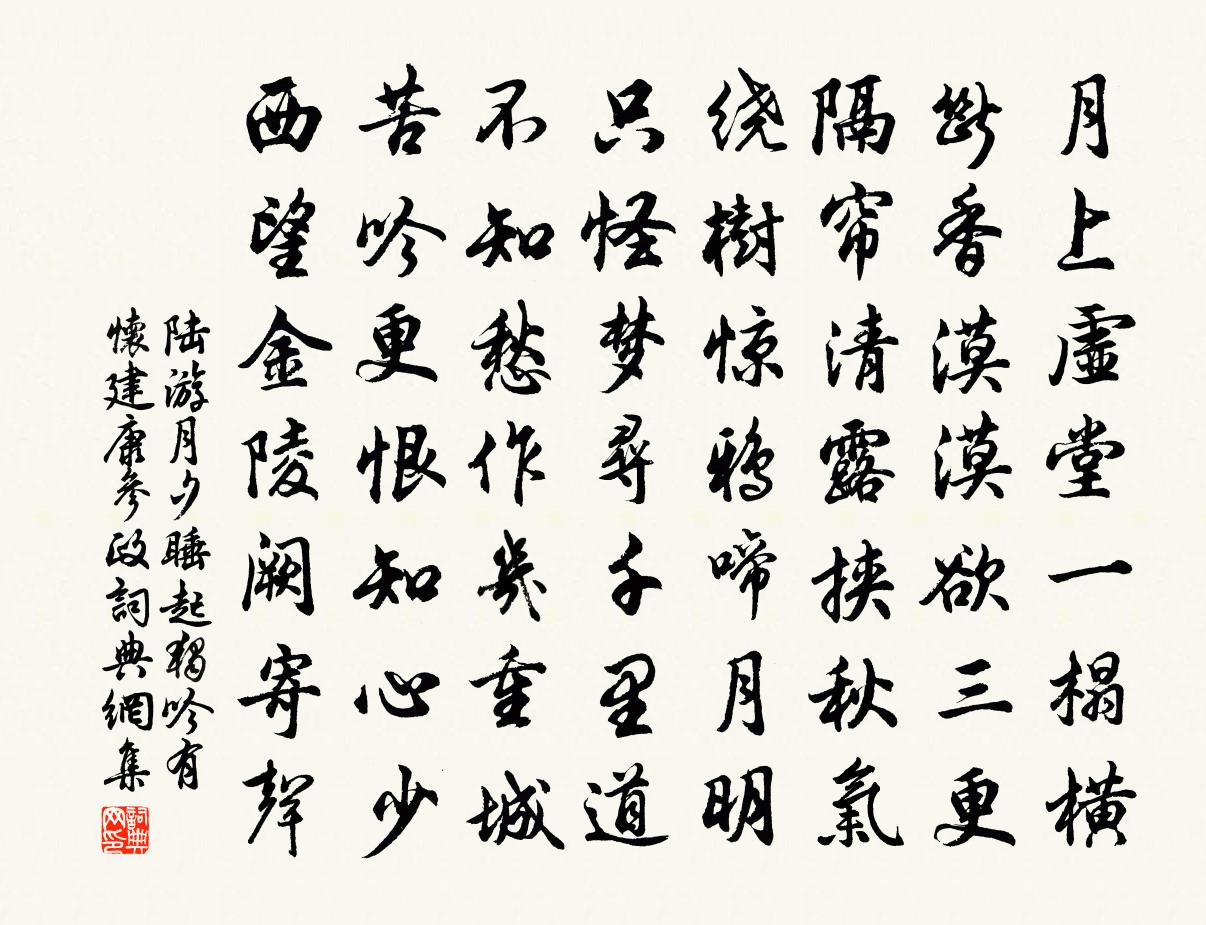 月上虛堂一榻橫
斷香漠漠欲三更
隔帘清露挾秋氣
绕樹惊鴉啼月明
只怪梦尋千里道
不知愁作幾重城
苦吟更恨知心少
西望金陵阙寄聲
陆游月夕睡起獨吟有
懷建康參政詞典網集
詞典网印